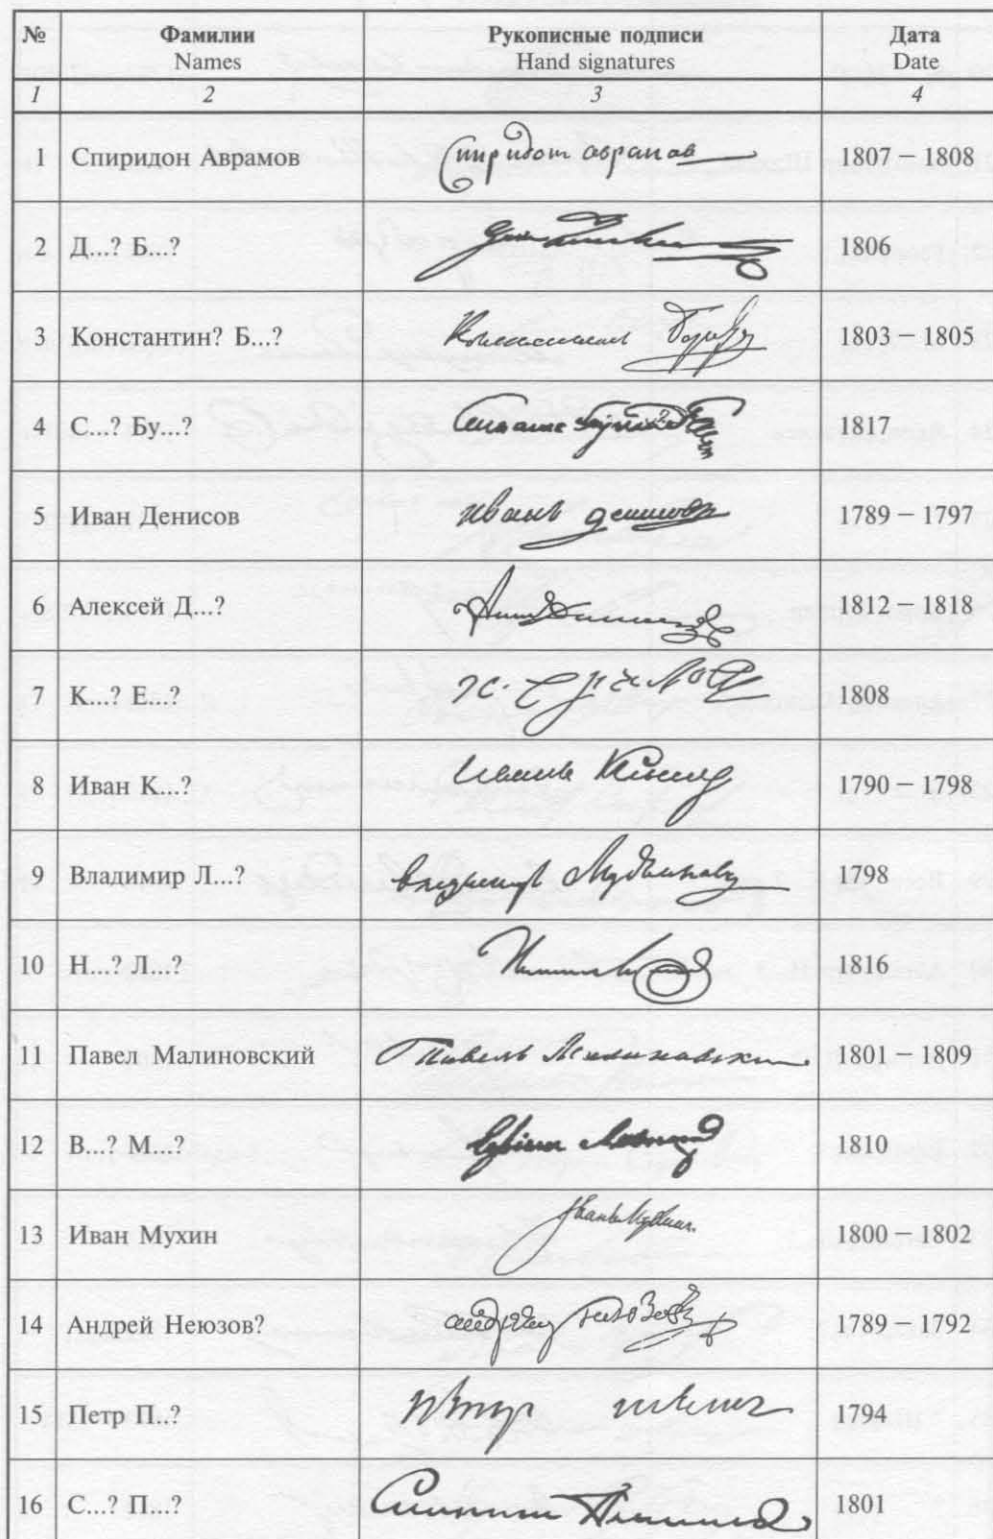 № Фамилии Рукописные подписи Дата
Names Hand signatures Date
1 2 3 4
1 Спиридон Аврамов Спиридон аврамов 1807 – 1808
2 Д...? Б...? 1806
3 Константин? Б...? 1803 – 1805
4 С...? Бу...? 1817
5 Иван Денисов иванъ денисовъ 1789 – 1797
6 Алексей Д...? 1812 – 1818
7 К...? Е...? 1808
8 Иван К...? 1790 – 1798
9 Владимир Л...? 1798
10 Н...? Л...? 1816
11 Павел Малиновский Павелъ Малиновски 1801 – 1809
12 В...? М...? 1810
13 Иван Мухин Иванъ Мухин 1800 – 1802
14 Андрей Неюзов? 1789 – 1792
15 Петр П...? 1794
16 С...? П...? 1801